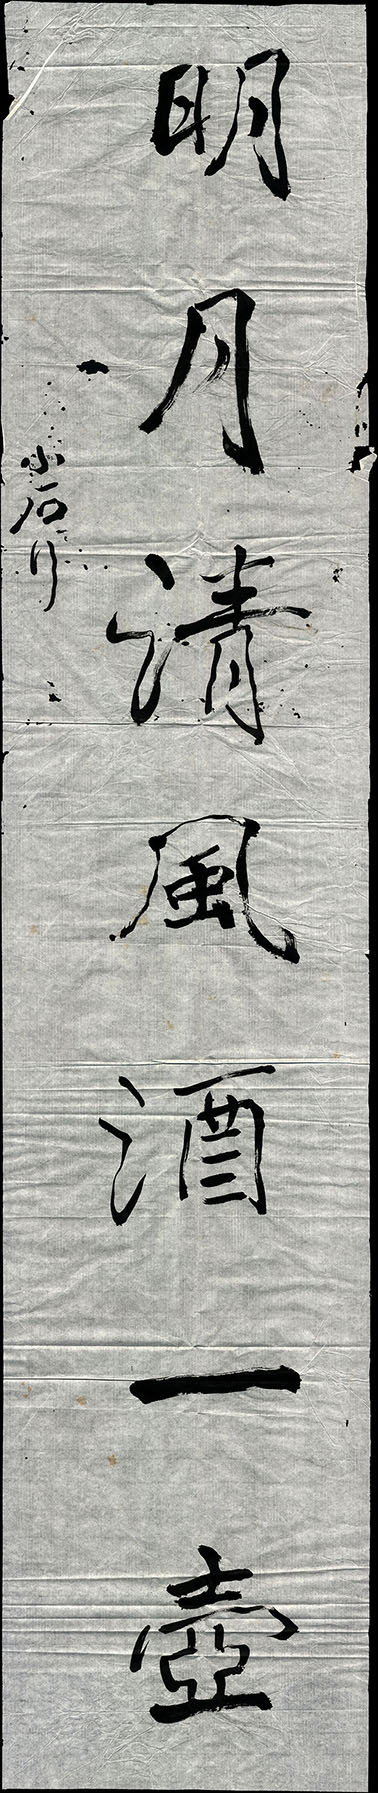 明月清風酒一壺
小石行